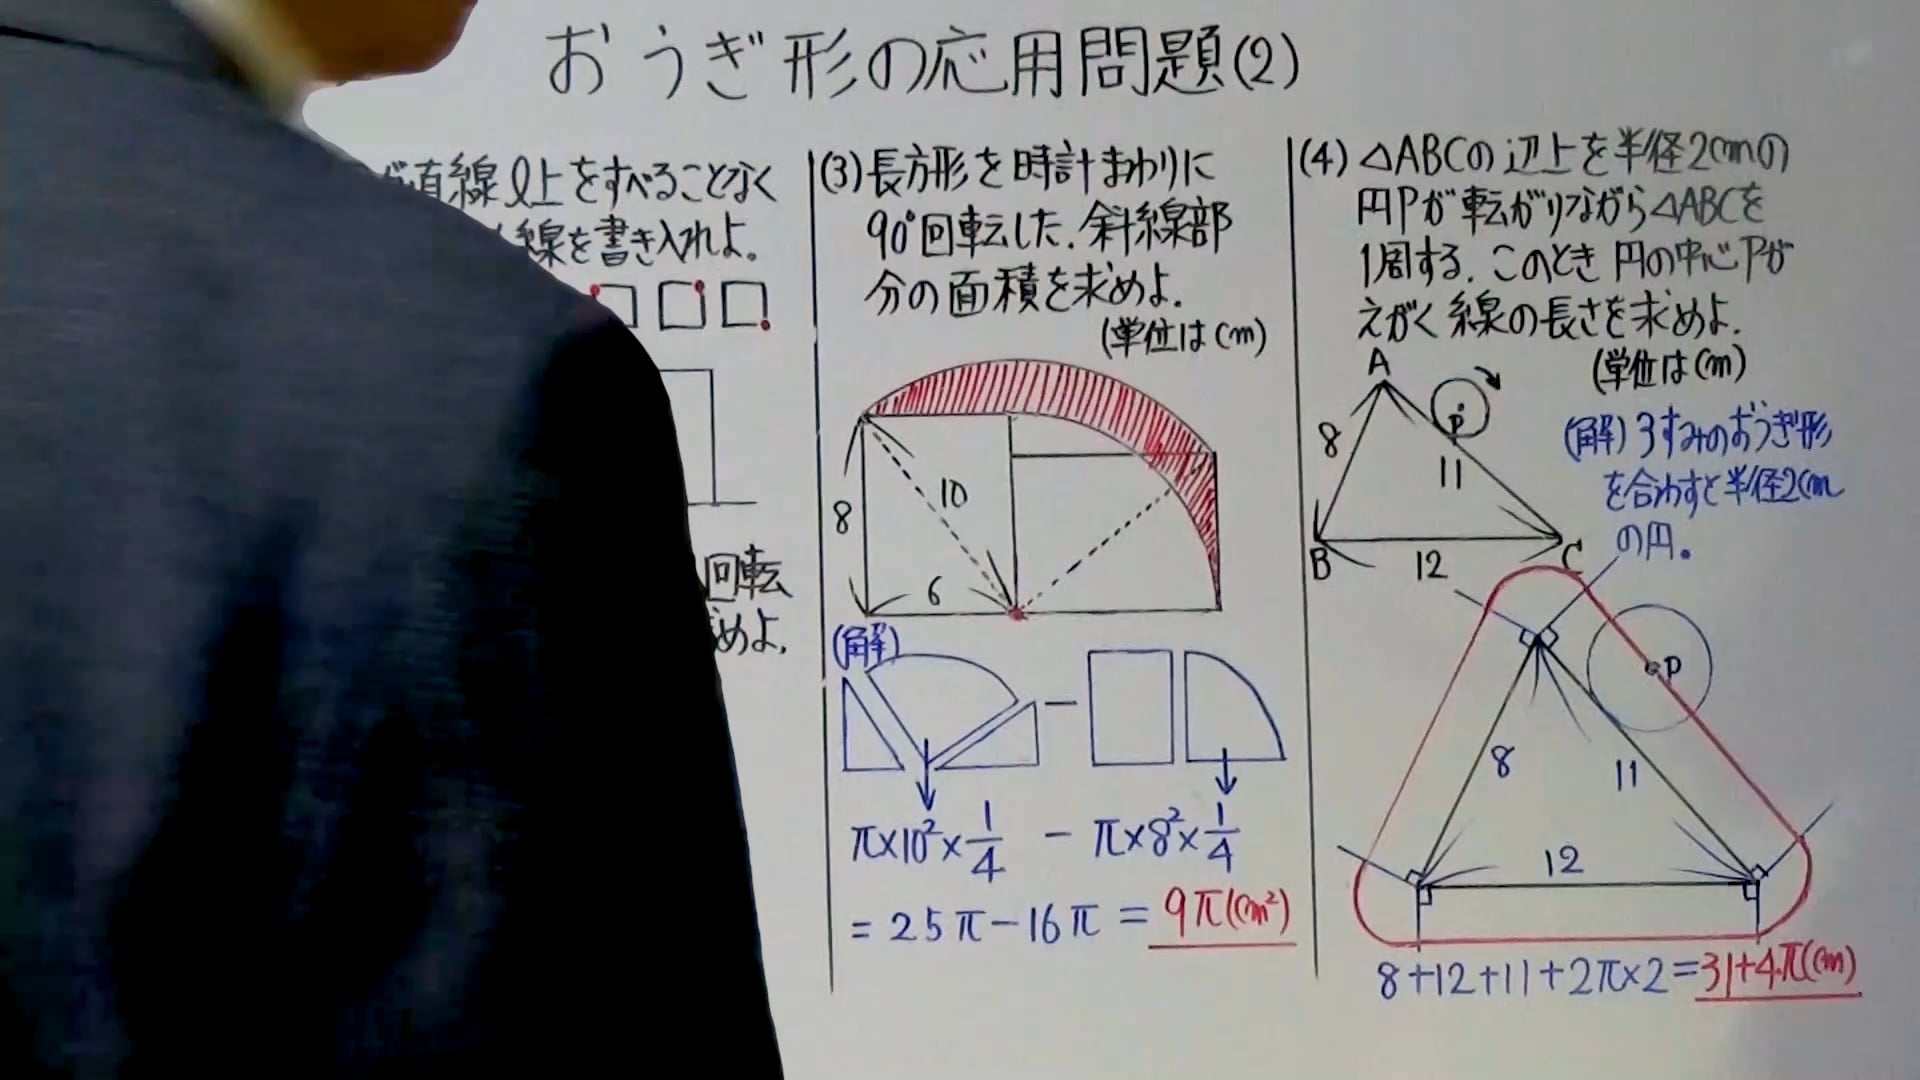 おうぎ形の応用問題(2)
直線l上をすべることなく
線を書き入れよ。
回転
めよ.
(3)長方形を時計まわりに
90°回転した.斜線部
分の面積を求めよ.
(単位はcm)
8
10
6
(解)
−
π×10²×1/4 − π×8²×1/4
= 25π−16π = 9π(cm²)
(4) △ABCの辺上を半径2cmの
円Pが転がりながら△ABCを
1周する.このとき円の中心Pが
えがく線の長さを求めよ.
(単位はcm)
A
P
8
11
B
12
C
(解)3すみのおうぎ形
を合わすと半径2cm
の円。
P
8
11
12
8+12+11+2π×2=31+4π(cm)